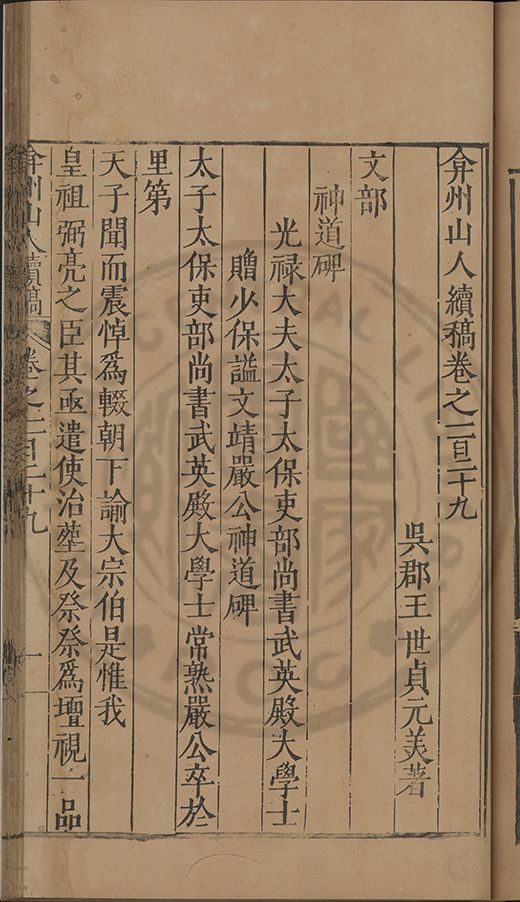 弇州山人續稿卷之一百二十九
吳郡王世貞元美著
文部
神道碑
光禄大夫太子太保吏部尚書武英殿大學士
贈少保謚文靖嚴公神道碑
太子太保吏部尚書武英殿大學士常熟嚴公卒於
里第
天子聞而震悼爲輟朝下諭大宗伯是惟我
皇祖弼亮之臣其亟遣使治塟及祭祭爲壇視一品
弇州山人續稿 卷之一百二十九 一